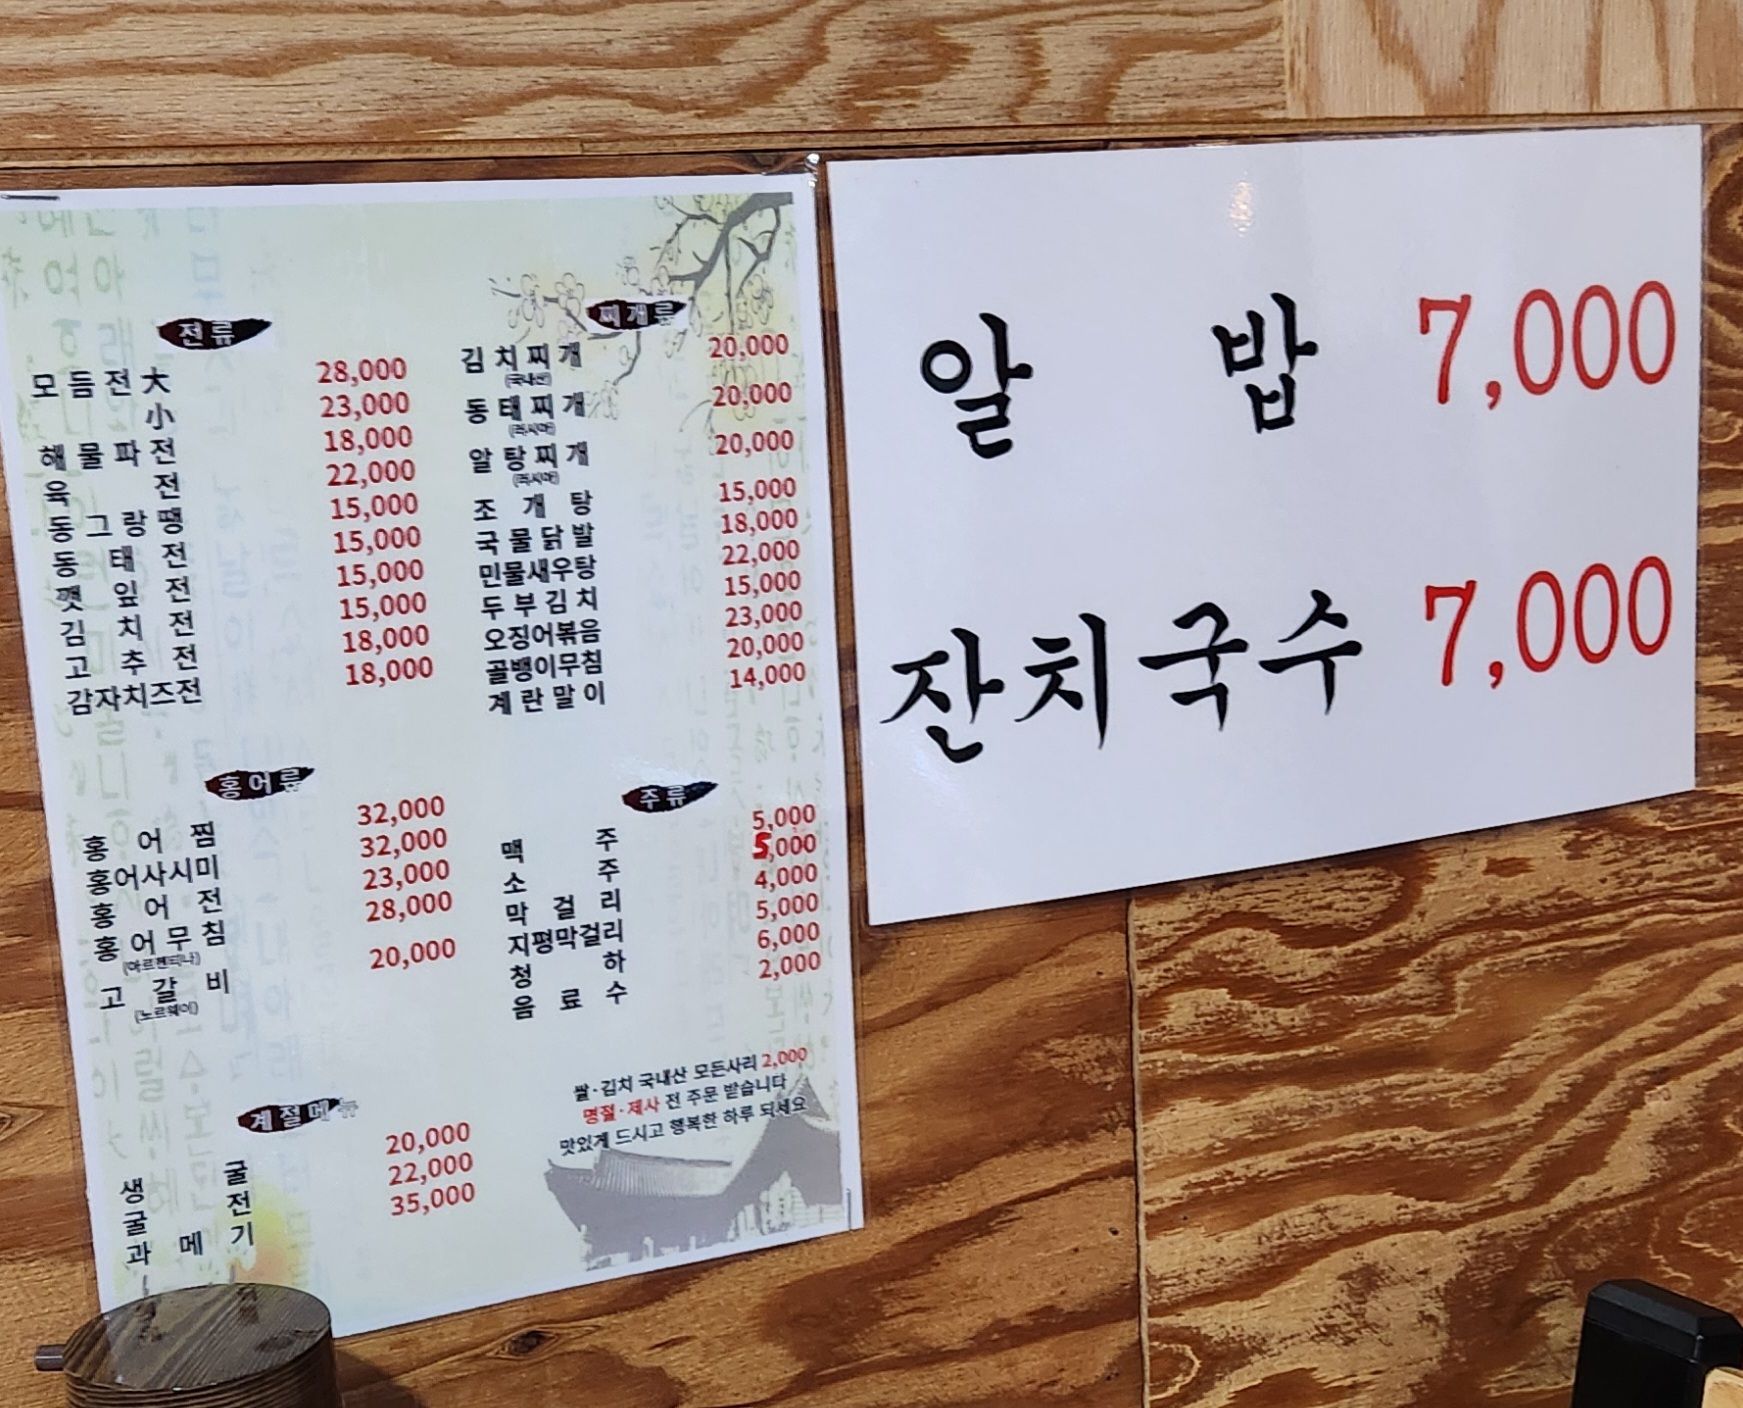 전류
모듬전大 28,000
小 23,000
해물파전 18,000
육전 22,000
동그랑땡 15,000
동태전 15,000
깻잎전 15,000
김치전 15,000
고추전 18,000
감자치즈전 18,000
찌개류
김치찌개 20,000
(국내산)
동태찌개 20,000
(러시아)
알탕찌개 20,000
(러시아)
조개탕 15,000
국물닭발 18,000
민물새우탕 22,000
두부김치 15,000
오징어볶음 23,000
골뱅이무침 20,000
계란말이 14,000
홍어류
홍어찜 32,000
홍어사시미 32,000
홍어전 23,000
홍어무침 28,000
(아르헨티나)
고갈비 20,000
(노르웨이)
주류
맥주 5,000
소주 5,000
막걸리 4,000
지평막걸리 5,000
청하 6,000
음료수 2,000
계절메뉴
생굴 20,000
굴전 22,000
과메기 35,000
쌀·김치 국내산 모든사리 2,000
명절·제사 전 주문 받습니다
맛있게 드시고 행복한 하루 되세요
알밥 7,000
잔치국수 7,000